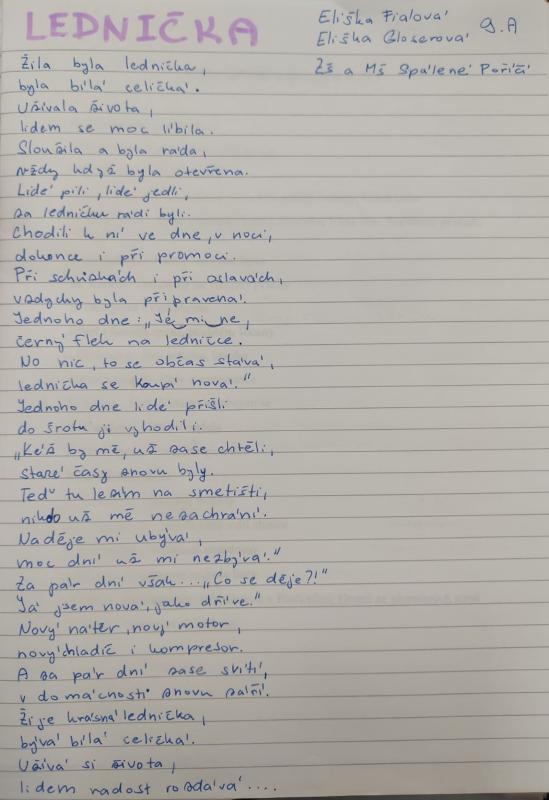 LEDNIČKA
Eliška Fialová
Eliška Gloserová
9.A
ZŠ a MŠ Spálené Poříčí
Žila byla lednička,
byla bílá celičká.
Užívala života,
lidem se moc líbila.
Sloužila a byla ráda,
vždy když byla otevřena.
Lidé pili, lidé jedli,
za ledničku rádi byli.
Chodili k ní ve dne, v noci,
dokonce i při promoci.
Při schůzkách i při oslavách,
vždycky byla připravena.
Jednoho dne: „Jé mi ne,
černý flek na ledničce.
No nic, to se občas stává,
lednička se koupí nová."
Jednoho dne lidé přišli
do šrotu ji vyhodili.
„Kéž by mě, už zase chtěli,
staré časy znovu byly.
Teď tu ležím na smetišti,
nikdo už mě nezachrání.
Naděje mi ubývá,
moc dní už mi nezbývá."
Za pár dní však... „Co se děje?!"
Já jsem nová, jako dříve."
Nový nátěr, nový motor,
nový chladič i kompresor.
A za pár dní zase svítí,
v domácnosti znovu září.
Žije krásná lednička,
bývá bílá celičká.
Užívá si života,
lidem radost rozdává....